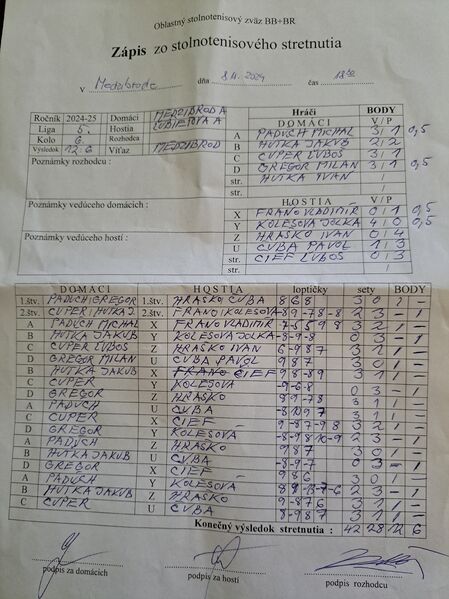 Oblastný stolnotenisový zväz BB+BR
Zápis zo stolnotenisového stretnutia
v Medzibrode dňa 8.11.2024 čas
Ročník 2024-25 Domáci MEDZIBROD A
Liga 5. Hostia ĽUBIETOVÁ A
Kolo 6. Rozhodca
Výsledok 12:6 Víťaz MEDZIBROD
Poznámky rozhodcu :
Poznámky vedúceho domácich :
Poznámky vedúceho hostí :
Hráči BODY
DOMÁCI V / P
A PADUCH MICHAL 3 / 1 0,5
B HUTKA JAKUB 2 / 2
C CUPER ĽUBOŠ 3 / 1
D GREGOR MILAN 3 / 1 0,5
str. HUTKA IVAN /
str. /
HOSTIA V / P
X FRAŇO VLADIMÍR 0 / 1 0,5
Y KOLESOVA JOLKA 4 / 0 0,5
Z HRAŠKO IVAN 0 / 4
U CUBA PAVOL 1 / 3
str. CIEF ĽUBOŠ 0 / 3
str. /
DOMÁCI HOSTIA loptičky sety BODY
1.štv. PADUCH GREGOR 1.štv. HRAŠKO CUBA 8 6 8 3 0 1 -
2.štv. CUPER HUTKA J. 2.štv. FRAŇO KOLESOVA 2 3 - 1
A PADUCH MICHAL X FRAŇO VLADIMÍR 3 2 1 -
B HUTKA JAKUB Y KOLESOVA JOLKA -8-9-8 0 3 - 1
C CUPER ĽUBOŠ Z HRAŠKO IVAN 6-987 3 1 1 -
D GREGOR MILAN U CUBA PAVOL 987 3 0 1 -
B HUTKA JAKUB X CIEF 3 1 1 -
C CUPER Y KOLESOVA -9-6-8 0 3 - 1
D GREGOR Z HRAŠKO 89-78 3 1 1 -
A PADUCH U CUBA 3 1 1 -
C CUPER X CIEF 3 2 1 -
D GREGOR Y KOLESOVA 2 3 - 1
A PADUCH Z HRAŠKO 987 3 0 1 -
B HUTKA JAKUB U CUBA -8-9-7 0 3 - 1
D GREGOR X CIEF 986 3 0 1 -
A PADUCH Y KOLESOVA 2 3 - 1
B HUTKA JAKUB Z HRAŠKO 9-876 3 1 1 -
C CUPER U CUBA 8-987 3 1 1 -
Konečný výsledok stretnutia : 42 28 12 6
podpis za domácich
podpis za hostí
podpis rozhodcu